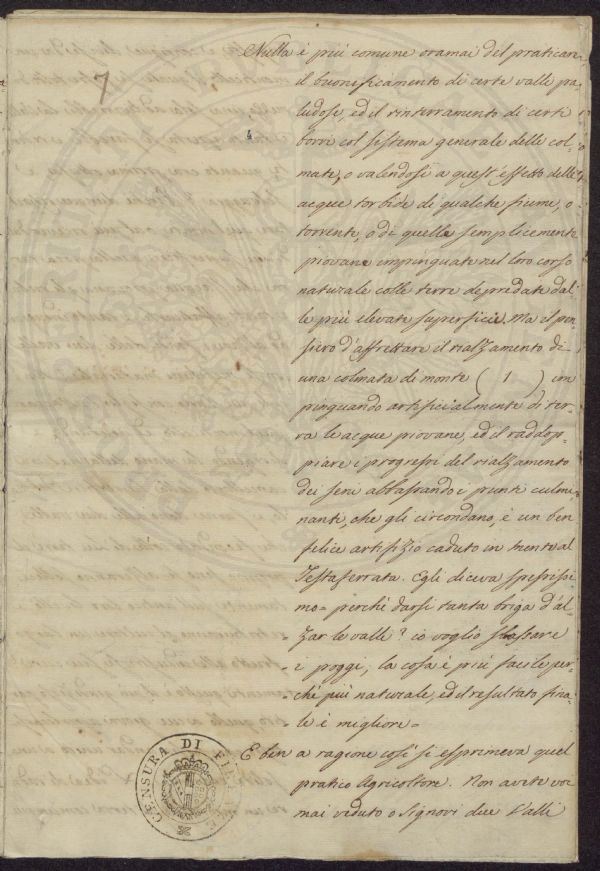 7
4
Nulla è più comune oramai del praticare
il buonificamento di certe valle pa-
ludose, ed il rinterramento di certi
borri col sistema generale delle col-
mate, o valendosi a quest'effetto delle
acque torbide di qualche fiume, o
torrente, o di quelle semplicemente
piovane impinguate nel loro corso
naturale colle terre depredate dal-
le più elevate superficie. Ma il pen-
siero d'affrettare il rialzamento di
una colmata di monte ( 1 ) im
pinguando artificialmente di ter-
ra le acque piovane, ed il raddop-
piare i progressi del rialzamento
dei seni abbassando i punti culmi-
nanti, che gli circondano, è un ben
felice artifizio caduto in mente al
Testaferrata. Egli diceva spessissi
mo = perchè darsi tanta briga d'al-
= zar le valle? io voglio sbassare
= i poggi; la cosa è più facile per-
= chè più naturale, ed il resultato fina-
= le è migliore =
E ben a ragione così si esprimeva quel
pratico Agricoltore. Non avete voi
mai veduto o Signori due Valli
CENSURA DI